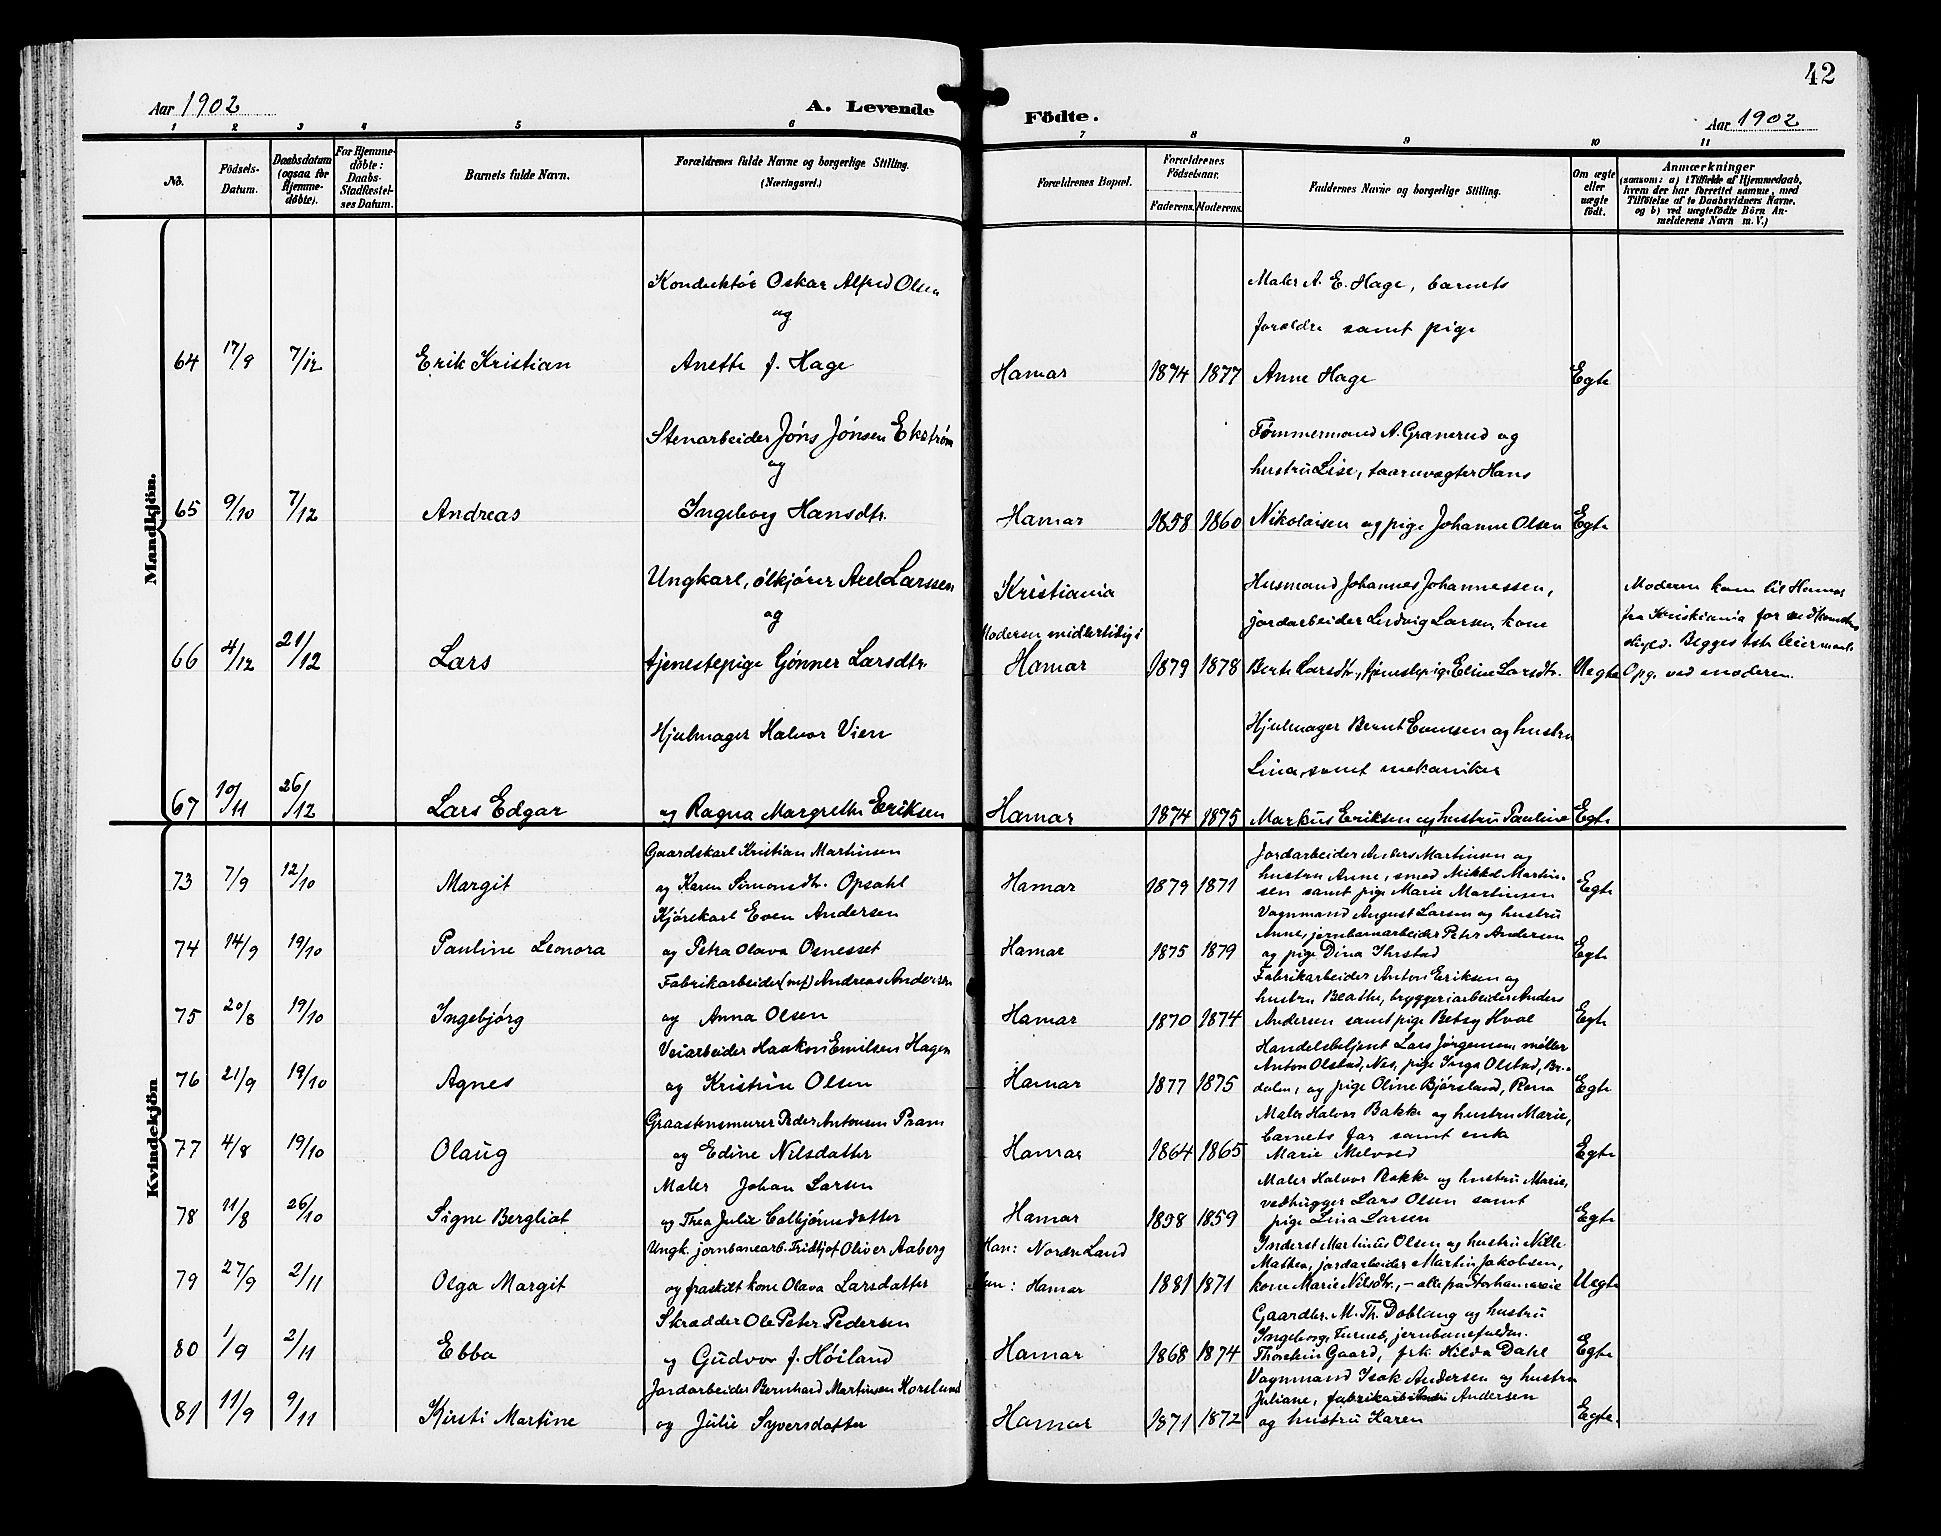 42
Aar 1902
A. Levende
Födte.
Aar 1902
1 2 3 4 5 6 7 8 9 10 11
No.
Födsels-
Datum.
Daabsdatum
(ogsaa for
Hjemme-
döbte).
For Hjemme-
döbte:
Daabs-
Stadfæstel-
ses Datum.
Barnets fulde Navn.
Forældrenes fulde Navne og borgerlige Stilling.
(Næringsvei.)
Forældrenes Bopæl.
Forældrenes
Födselsaar.
Faderens. Moderens.
Faddernes Navne og borgerlige Stilling.
Om ægte
eller
uægte
födt.
Anmærkninger
(saasom: a) i Tilfælde af Hjemmedaab,
hvem der har forrettet samme, med
Tilföielse af to Daabsvidners Navne,
og b) ved uægtefödte Börn An-
melderens Navn m. V.)
Mandkjön.
Konduktør Oskar Alfred Olsen
og
64 17/9 7/12 Erik Kristian Anette f. Hage Hamar 1874 1877
Maler A. E. Hage, barnets
forældre samt pige
Anne Hage Egte
Stenarbeider Jöns Jönsen Ekström
og
65 9/10 7/12 Andreas Ingeborg Hansdtr. Hamar 1858 1860
Tømmermand A. Granerud og
hustru Lise, taarnvægter Hans
Nikolaisen og pige Johanne Olsen Egte
Ungkarl, ölkjører Axel Larssen
og
66 4/12 21/12 Lars tjenestepige Gönner Larsdtr
Kristiania
Moderen midlertidig i
Hamar 1879 1878
Husmand Johannes Johannessen,
jordarbeider Ludvig Larsen, kone
Berte Larsdtr, tjenestepige Eline Larsdtr. Uegte
Moderen kom til Hamar
fra Kristiania for
skyld. Begges 1ste leiermaal.
Opg. ved moderen.
Hjulmager Halvor Vien
67 10/11 26/12 Lars Edgar og Ragna Margrethe Eriksen Hamar 1874 1875
Hjulmager Bernt Evensen og hustru
Lina, samt mekaniker
Markus Eriksen og hustru Pauline Egte
Kvindekjön
Gaardskarl Kristian Martinsen
73 7/9 12/10 Margit og Karen Simonsdtr. Opsahl Hamar 1879 1871
Jordarbeider Anders Martinsen og
hustru Anne, smed Mikkel Martin-
sen samt pige Marie Martinsen Egte
Kjørekarl Even Andersen
74 14/9 19/10 Pauline Leonora og Petra Olava Osnesset Hamar 1875 1879
Vognmand August Larsen og hustru
Anne, jernbanearbeider Peter Andersen
og pige Dina Egte
Fabrikarbeider Andreas Andersen
75 20/8 19/10 Ingebjørg og Anna Olsen Hamar 1870 1874
Fabrikarbeider Anton Eriksen og
hustru Beathe, bryggeriarbeider Anders
Andersen samt pige Betsy Hval Egte
Veiarbeider Haakon Emilsen Hagen
76 21/9 19/10 Agnes og Kristine Olsen Hamar 1877 1875
Handelsbetjent Lars Jørgensen, møller
Anton Olstad, Nes, pige Inga Olstad, Bre-
dalen, og pige Oline Bjørsland, Rena Egte
Graastensmurer Peder Antonsen Pram
77 4/8 19/10 Olaug og Edine Nilsdatter Hamar 1864 1865
Maler Halvor Bakke og hustru Marie,
barnets far samt enke
Marie Melvold Egte
Maler Johan Larsen
78 11/8 26/10 Signe Bergliot og Thea Julie Colbjørnsdatter Hamar 1858 1859
Maler Halvor Bakke og hustru Marie,
vedhugger Lars Olsen samt
pige Lina Larsen Egte
Ungk. jernbanearb. Fridtjof Oliver Aaberg
79 27/9 2/11 Olga Margit og fraskilt kone Olava Larsdatter
Han: Nordre Land
Hun: Hamar 1881 1871
Inderst Martinus Olsen og hustru Nille
Mathea, jordarbeider Martin Jakobsen,
kone Marie Nilsdtr, – alle paa Storhamareie Uegte
Skrædder Ole Peter Pedersen
80 1/9 2/11 Ebba og Gudvor f. Høiland Hamar 1868 1874
Gaardbr. M. Th. Doblaug og hustru
Ingeborg, Furnes, jernbanefuldm.
Thorstein Gaard, frk Hilda Dahl Egte
Jordarbeider Bernhard Martinsen Korslund
81 11/9 9/11 Kirsti Martine og Julie Syversdatter Hamar 1871 1872
Vognmand Isak Andersen og hustru
Juliane, fabrikarbeider Andersen
og hustru Karen Egte.